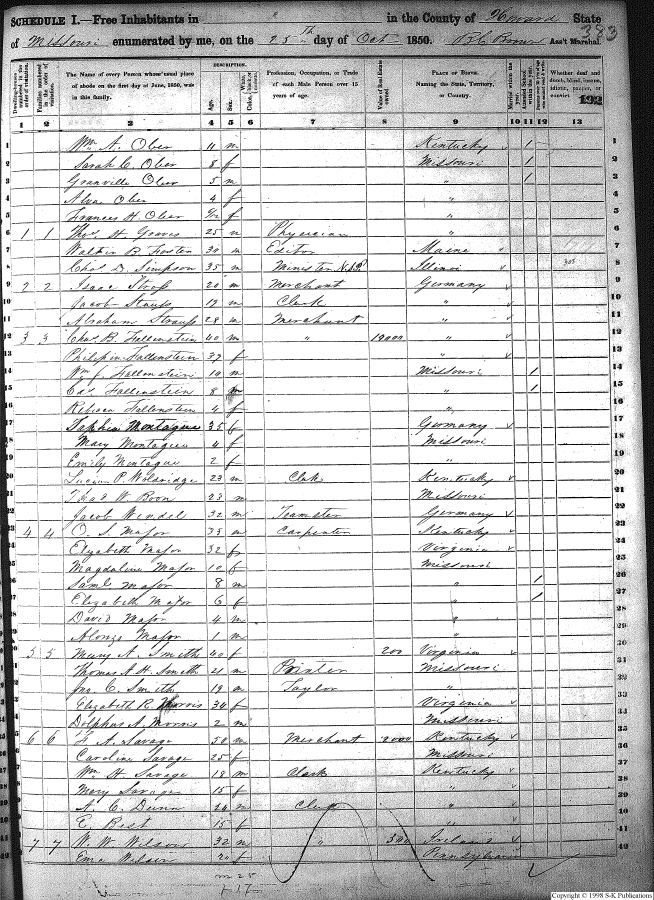 SCHEDULE I.—Free Inhabitants in " in the County of Howard State
of Missouri enumerated by me, on the 25th day of Oct 1850. Ass't Marshal.
383
Dwelling-houses numbered in the order of visitation.
Families numbered in the order of visitation.
The Name of every Person whose usual place of abode on the first day of June, 1850, was in this family.
DESCRIPTION.
Age.
Sex.
White, black, or mulatto.
Color
Profession, Occupation, or Trade of each Male Person over 15 years of age.
Value of Real Estate owned.
PLACE OF BIRTH. Naming the State, Territory, or Country.
Married within the year.
Attended School within the year.
Whether deaf and dumb, blind, insane, idiotic, pauper, or convict.
192
1 2 3 4 5 6 7 8 9 10 11 12 13
1 Wm A. Ober 11 m Kentucky 1 1
2 Sarah C. Ober 8 f Missouri 1 2
3 Granville Ober 5 m " 1 3
4 Ober 4 f " 4
5 Frances H Ober f " 5
6 1 1 Thos H Graves 25 m Physician " 6
7 B. 30 m Editor Maine 7
8 Chas D. Simpson 35 m Minister Illinoi 8
9 2 2 Isaac 20 m Merchant Germany 9
10 Jacob 17 m Clerk " 10
11 Abraham Strauss 28 m Merchant " 11
12 3 3 Chas B. Fallenstein 40 m " 12000 " 12
13 Fallenstein 37 f " 13
14 Wm J. Fallenstein 10 m Missouri 1 14
15 Fallenstein 8 m " 1 15
16 Rebecca Fallenstein 4 f " 16
17 Montague 35 f Germany 17
18 Mary Montague 4 f Missouri 18
19 Emily Montague 2 f " 19
20 P. Woldridge 23 m Clerk Kentucky 20
21 W. Boon 23 m Missouri 21
22 Jacob Wendel 32 m Teamster Germany 22
23 4 4 O. S. Major 35 m Carpenter Kentucky 23
24 Elizabeth Major 32 f Virginia 24
25 Magdaline Major 10 f Missouri 25
26 Saml Major 8 m " 1 26
27 Elizabeth Major 6 f " 1 27
28 David Major 4 m " 28
29 Alonzo Major 1 m " 29
30 5 5 Mary A. Smith 40 f 200 Virginia 30
31 Thomas A. H. Smith 21 m Missouri 31
32 Jno C. Smith 19 m Taylor " 32
33 Elizabeth R. Morris 34 f Virginia 33
34 Dolphus A. Morris 2 m Missouri 34
35 6 6 A. Savage 50 m Merchant 2000 Kentucky 35
36 Caroline Savage 25 f Missouri 36
37 Wm H Savage 19 m Clerk Kentucky 37
38 Mary Savage 15 f " 38
39 A. C. Dunn 24 m Clerk " 39
40 E Best 15 f " 40
41 7 7 W. W. Wilson 32 m " Ireland 41
42 Ema Wilson f Pennsylvania 42
m 25
f 17
Copyright © 1998 S-K Publications